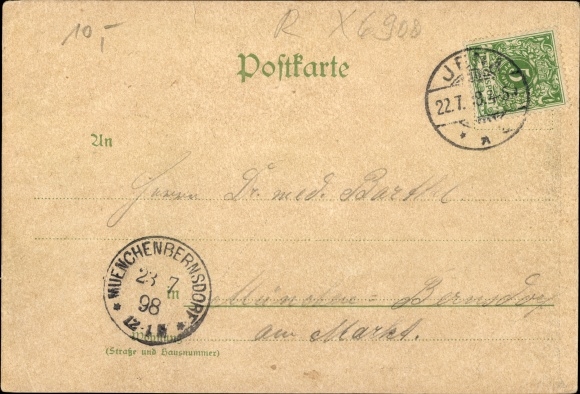 10,-
R X6908
Postkarte
JENA
22.7.
5
An
Herrn Dr. med. Barthel
MUENCHENBERNSDORF
23 7
98
in München-Bernsdorf
am Markt.
Wohnung
(Straße und Hausnummer)